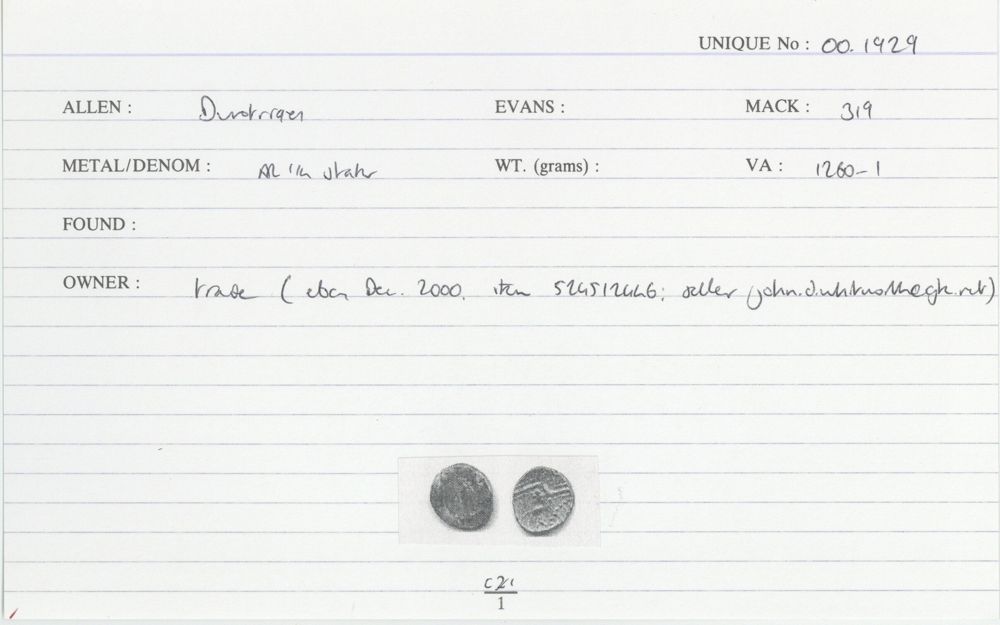 UNIQUE No : 00.1929
ALLEN : Durotriges EVANS : MACK : 319
METAL/DENOM : AR 1/4 stater WT. (grams) : VA : 1260-1
FOUND :
OWNER : trade ( ebay Dec. 2000, item 524512446; seller
1